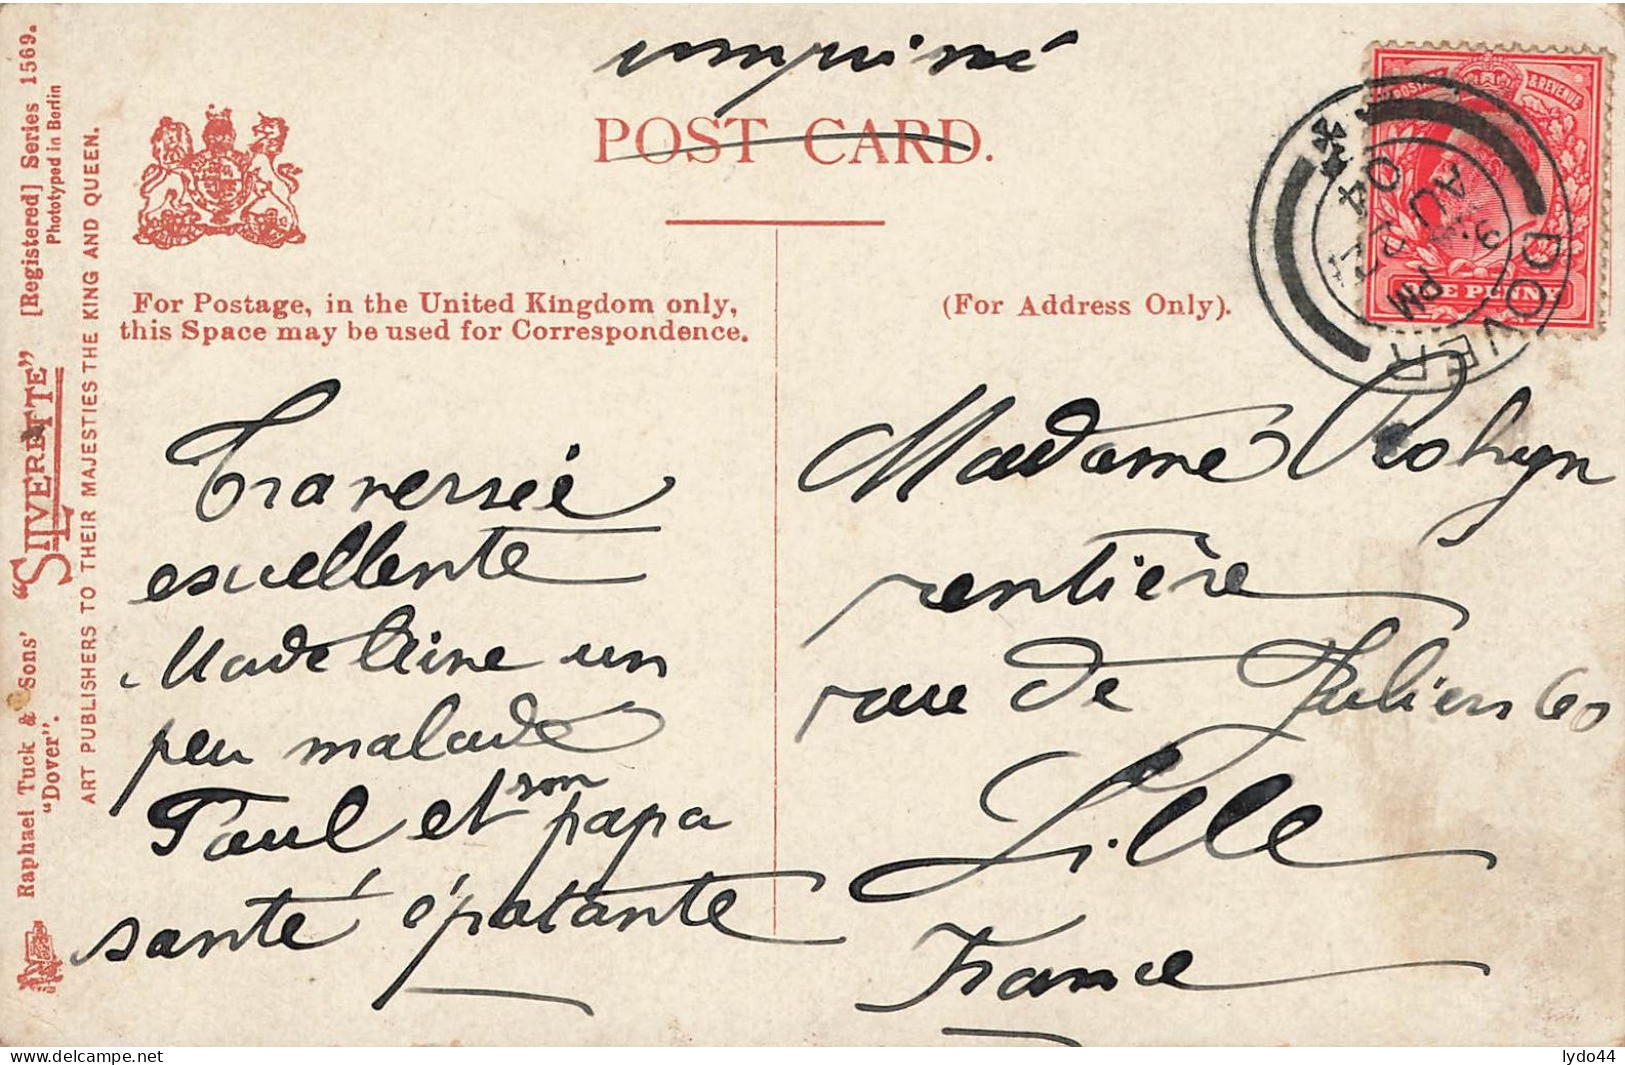 imprimé
POST CARD.
For Postage, in the United Kingdom only,
this Space may be used for Correspondence.
(For Address Only).
Traversée
excellente
Madeleine un
peu malade
Paul et son papa
santé épatante
Madame
rentière
rue de Juliers 60
Lille
France
Raphael Tuck & Sons' "SILVERETTE" [Registered] Series 1569.
"Dover". Phototyped in Berlin
ART PUBLISHERS TO THEIR MAJESTIES THE KING AND QUEEN.
POSTAGE & REVENUE
ONE PENNY
DOVER
PM
AU
04
www.delcampe.net
lydo44